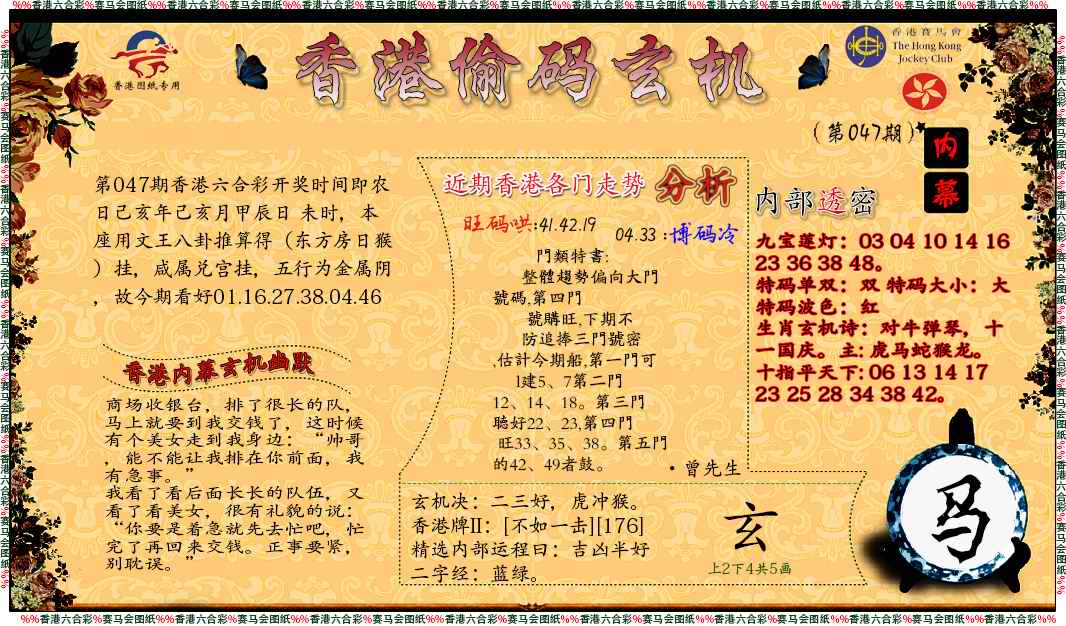 %%香港六合彩%赛马会图纸%%香港六合彩%赛马会图纸%%香港六合彩%赛马会图纸%%香港六合彩%赛马会图纸%%香港六合彩%赛马会图纸%%香港六合彩%赛马会图纸%%香港六合彩%赛马会图纸%%香港六合彩%%
香港图纸专用
香港偷码玄机
香港賽馬會
The Hong Kong
Jockey Club
(第047期)
内幕
第047期香港六合彩开奖时间即农
日己亥年己亥月甲辰日 未时，本
座用文王八卦推算得（东方房日猴
）挂，咸属兑宫挂，五行为金属阴
，故今期看好01.16.27.38.04.46
香港内幕玄机幽默
商场收银台，排了很长的队，
马上就要到我交钱了，这时候
有个美女走到我身边：“帅哥
，能不能让我排在你前面，我
有急事。”
我看了看后面长长的队伍，又
看了看美女，很有礼貌的说：
“你要是着急就先去忙吧，忙
完了再回来交钱。正事要紧，
别耽误。”
近期香港各门走势 分析
旺码哄:41.42.19
04.33 :博码冷
門類特書:
整體趨勢偏向大門
號碼,第四門
號購旺,下期不
防追捧三門號密
,估計今期船,第一門可
1建5、7第二門
12、14、18。第三門
聽好22、23,第四門
旺33、35、38。第五門
的42、49者鼓。
•曾先生
玄机决：二三好，虎冲猴。
香港牌II：[不如一击][176]
精选内部运程曰：吉凶半好
二字经：蓝绿。
玄
上2下4共5画
内部透密
九宝莲灯：03 04 10 14 16
23 36 38 48。
特码单双：双 特码大小：大
特码波色：红
生肖玄机诗：对牛弹琴，十
一国庆。主: 虎马蛇猴龙。
十指平天下: 06 13 14 17
23 25 28 34 38 42。
马
%%香港六合彩%赛马会图纸%%香港六合彩%赛马会图纸%%香港六合彩%赛马会图纸%%香港六合彩%赛马会图纸%%香港六合彩%赛马会图纸%%香港六合彩%赛马会图纸%%香港六合彩%赛马会图纸%%香港六合彩%%